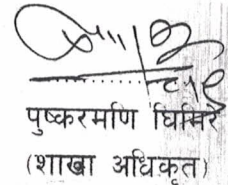 पुष्करमणि घिमिरे
(शाखा अधिकृत)